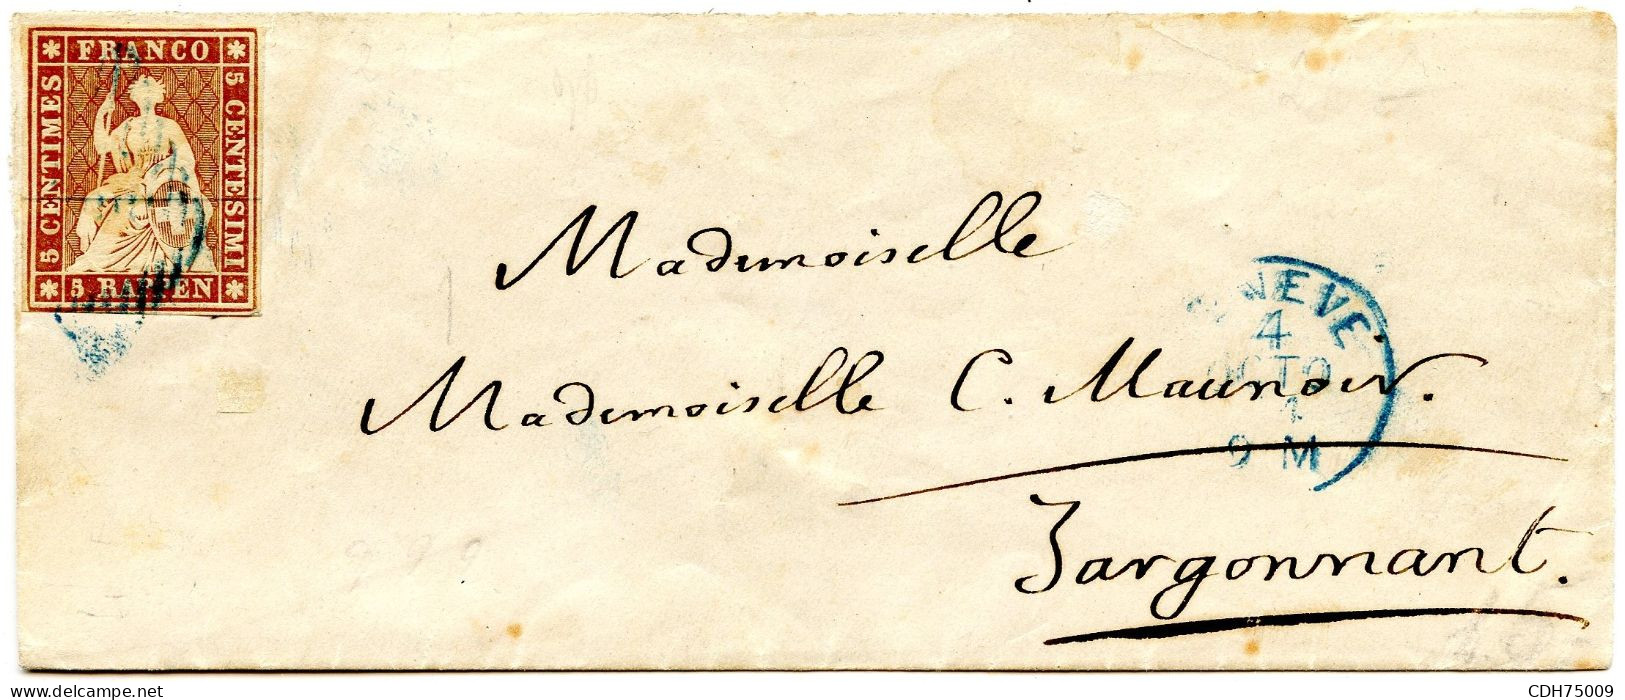 FRANCO
5 CENTIMES
5 CENTESIMI
5 RAPPEN
Mademoiselle
Mademoiselle C. Maunoir.
Jargonnant.
4
OCTO
9 M
delcampe.net
CDH75009